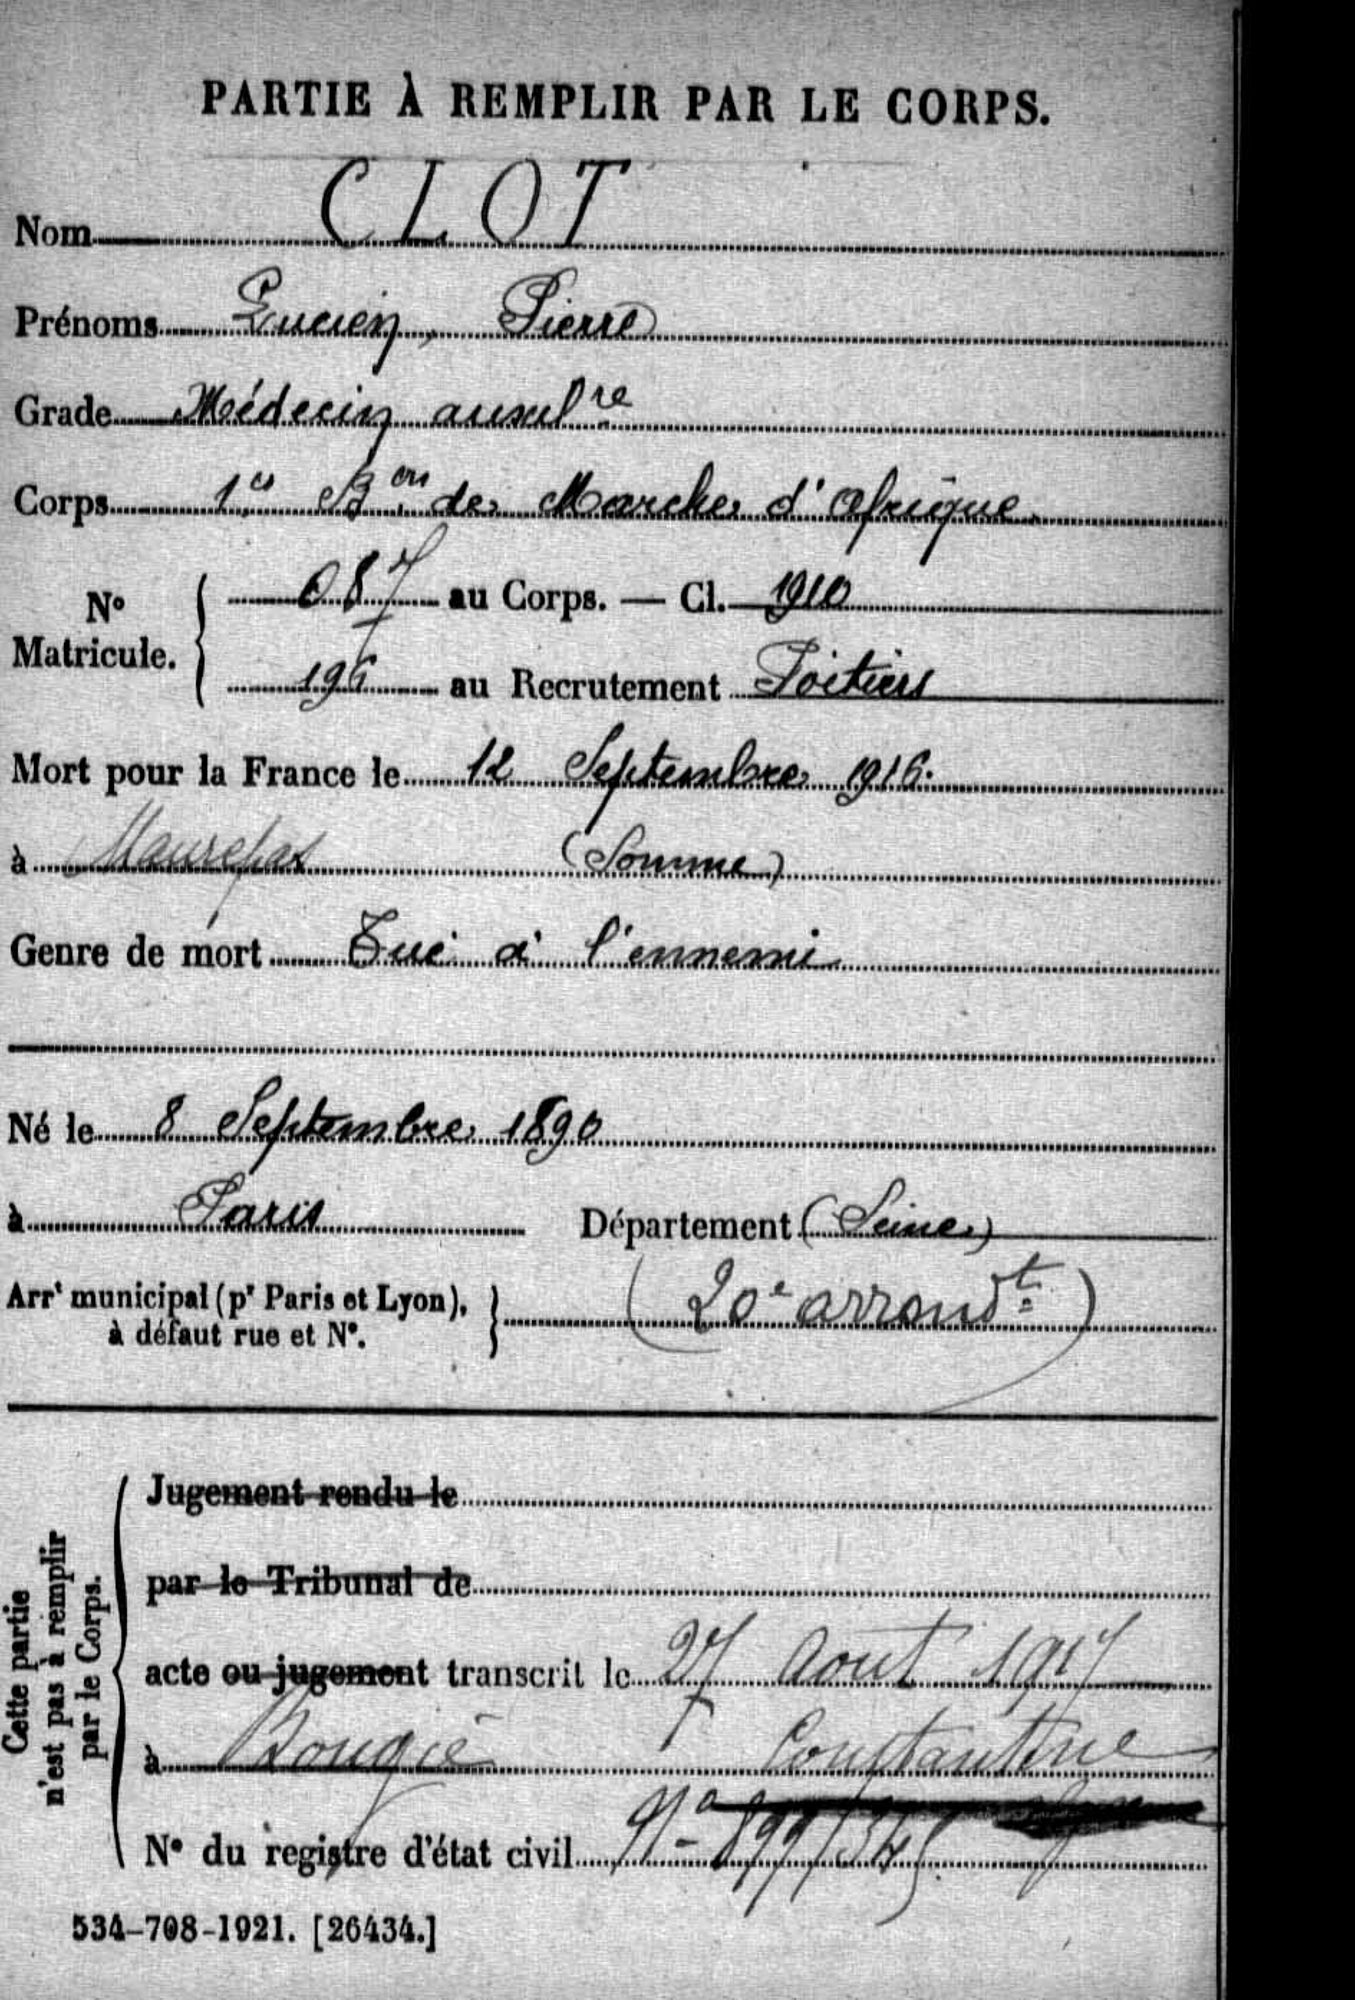 PARTIE À REMPLIR PAR LE CORPS.
Nom CLOT
Prénoms Lucien, Pierre
Grade Médecin auxilre
Corps 1er Bon de Marche d'Afrique
No Matricule. 087 au Corps. — Cl. 1910
196 au Recrutement Poitiers
Mort pour la France le 12 Septembre 1916.
à Maurepas (Somme)
Genre de mort Tué à l'ennemi
Né le 8 Septembre 1890
à Paris Département (Seine)
Arrt municipal (pr Paris et Lyon), à défaut rue et No. (20e arrondt)
Cette partie n'est pas à remplir par le Corps.
Jugement rendu le
par le Tribunal de
acte ou jugement transcrit le 27 Aout 1917
à Bougie Constantine
No du registre d'état civil No 899/345
534-708-1921. [26434.]